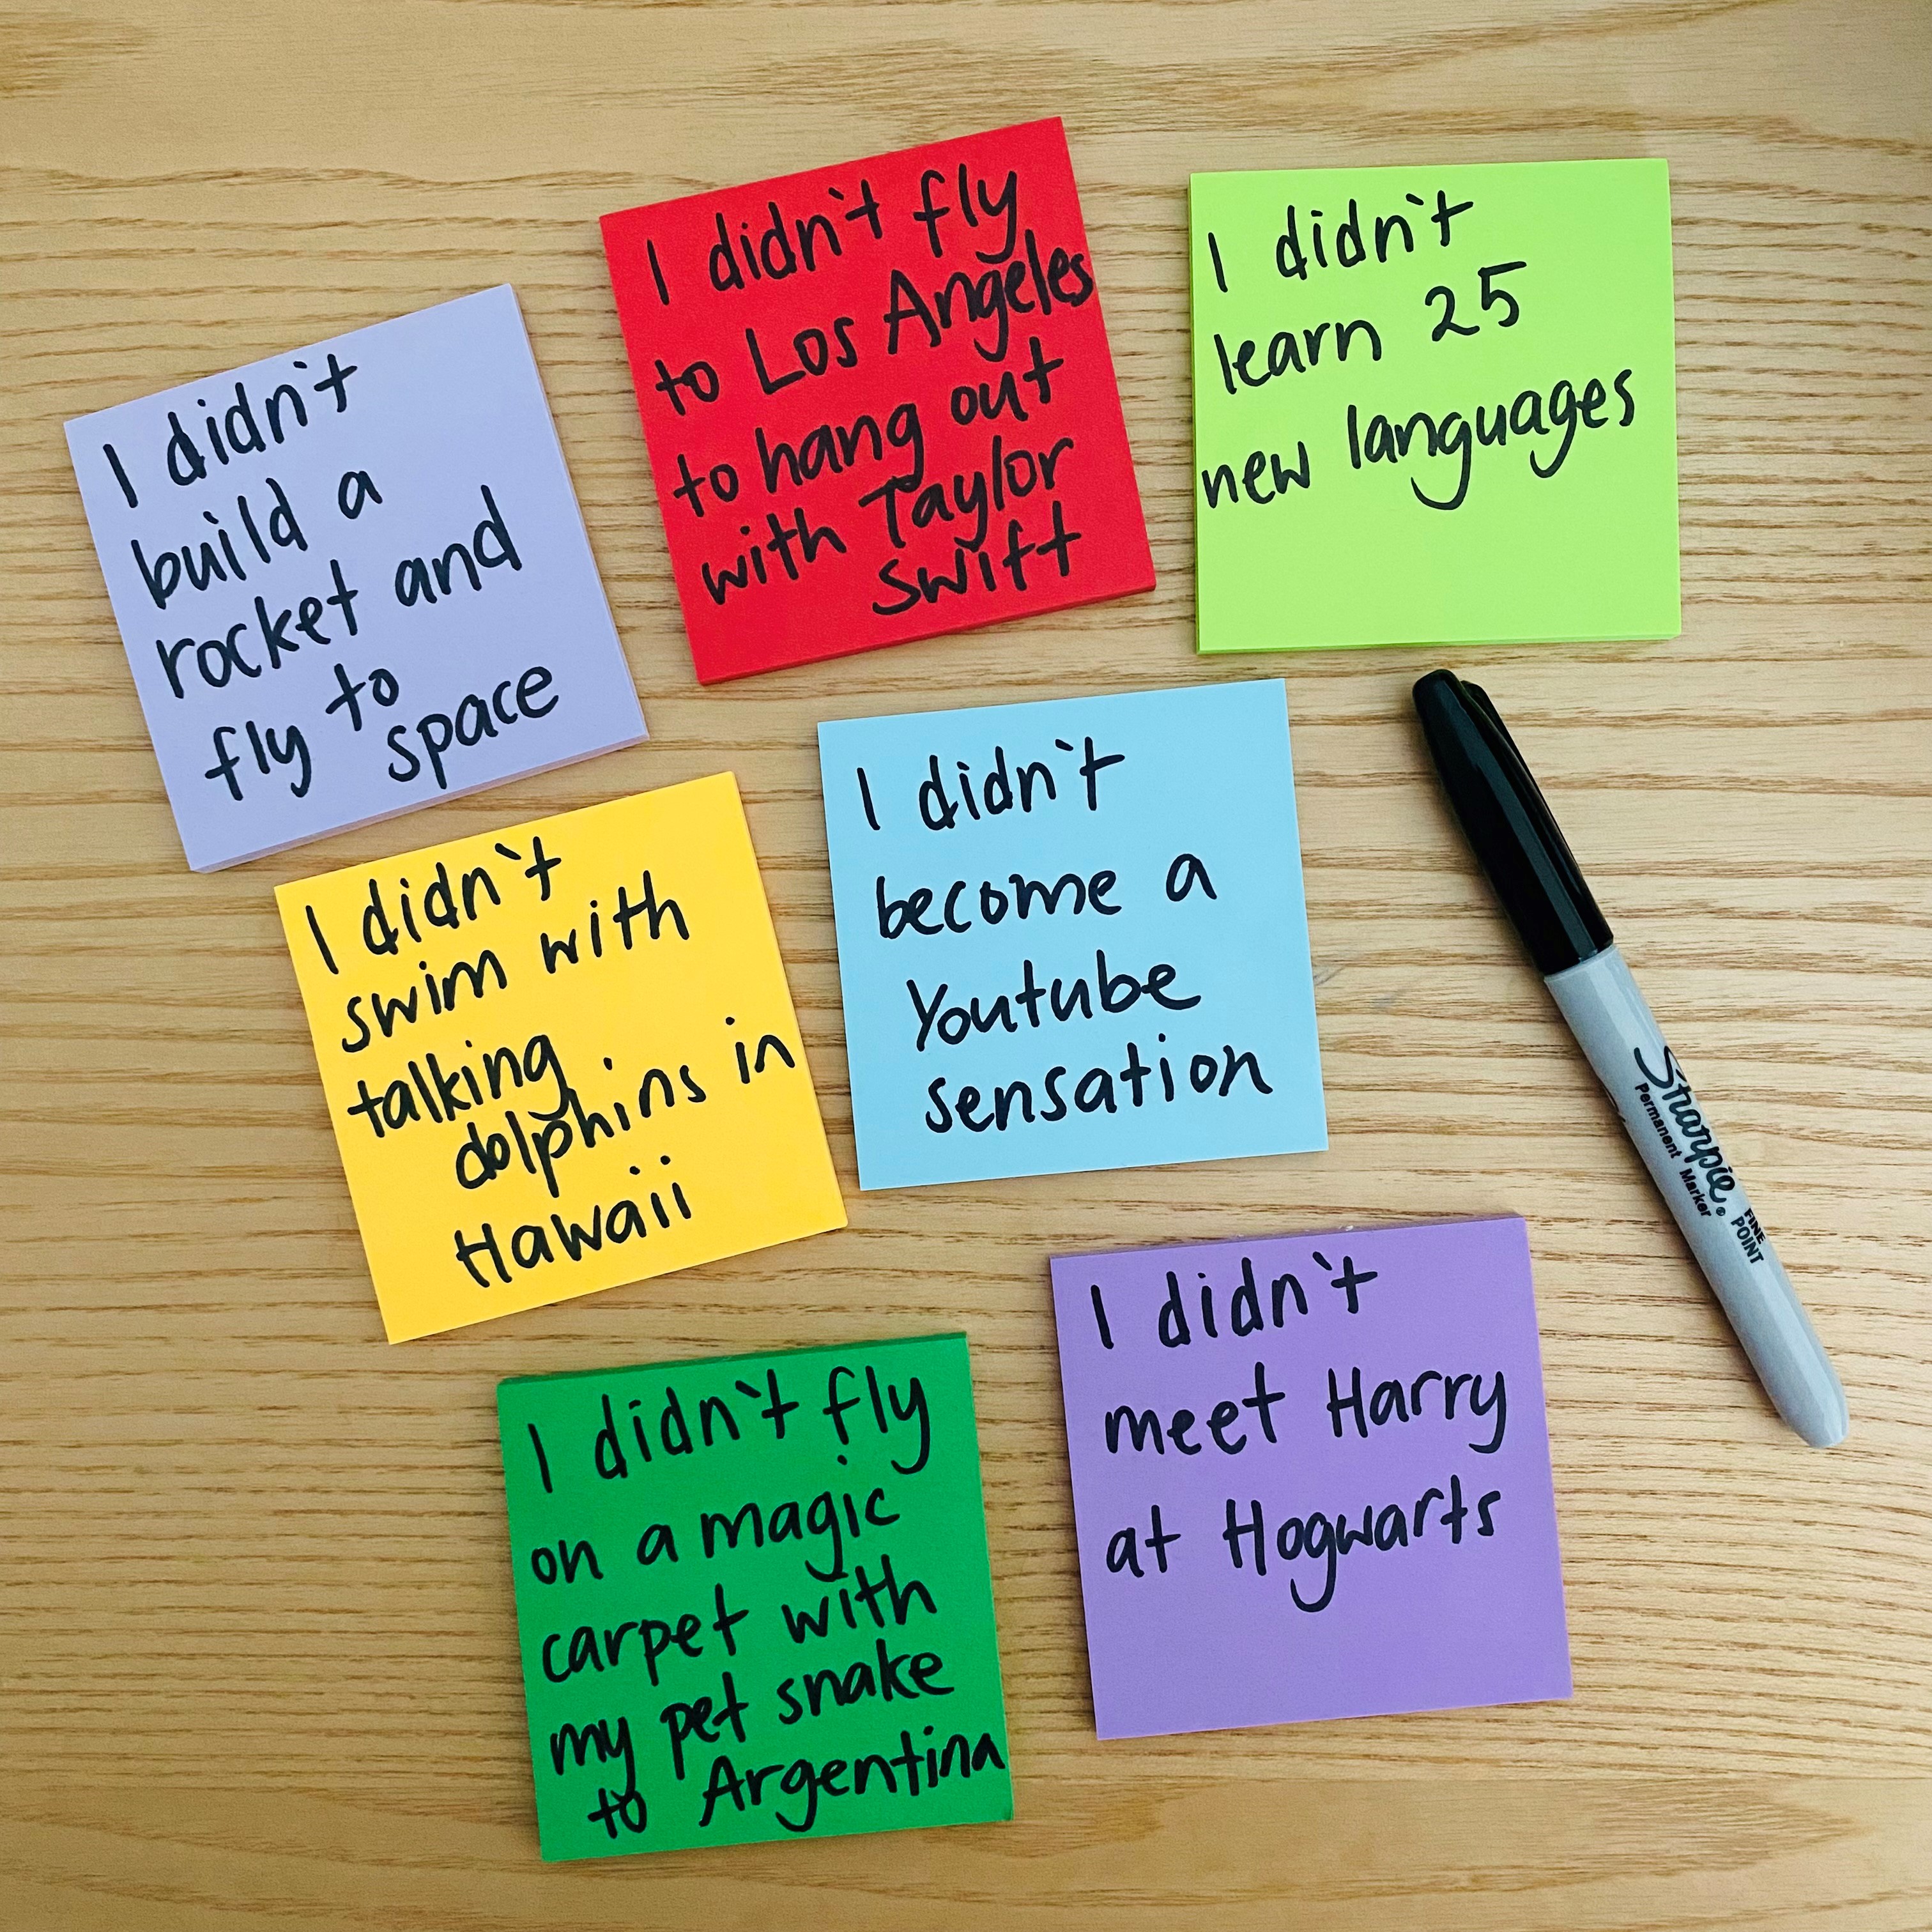 I didn't
build a
rocket and
fly to
space
I didn't fly
to Los Angeles
to hang out
with Taylor
Swift
I didn't
learn 25
new languages
I didn't
swim with
talking
dolphins in
Hawaii
I didn't
become a
Youtube
sensation
I didn't fly
on a magic
carpet with
my pet snake
to Argentina
I didn't
meet Harry
at Hogwarts
Sharpie®
Permanent Marker
FINE
POINT